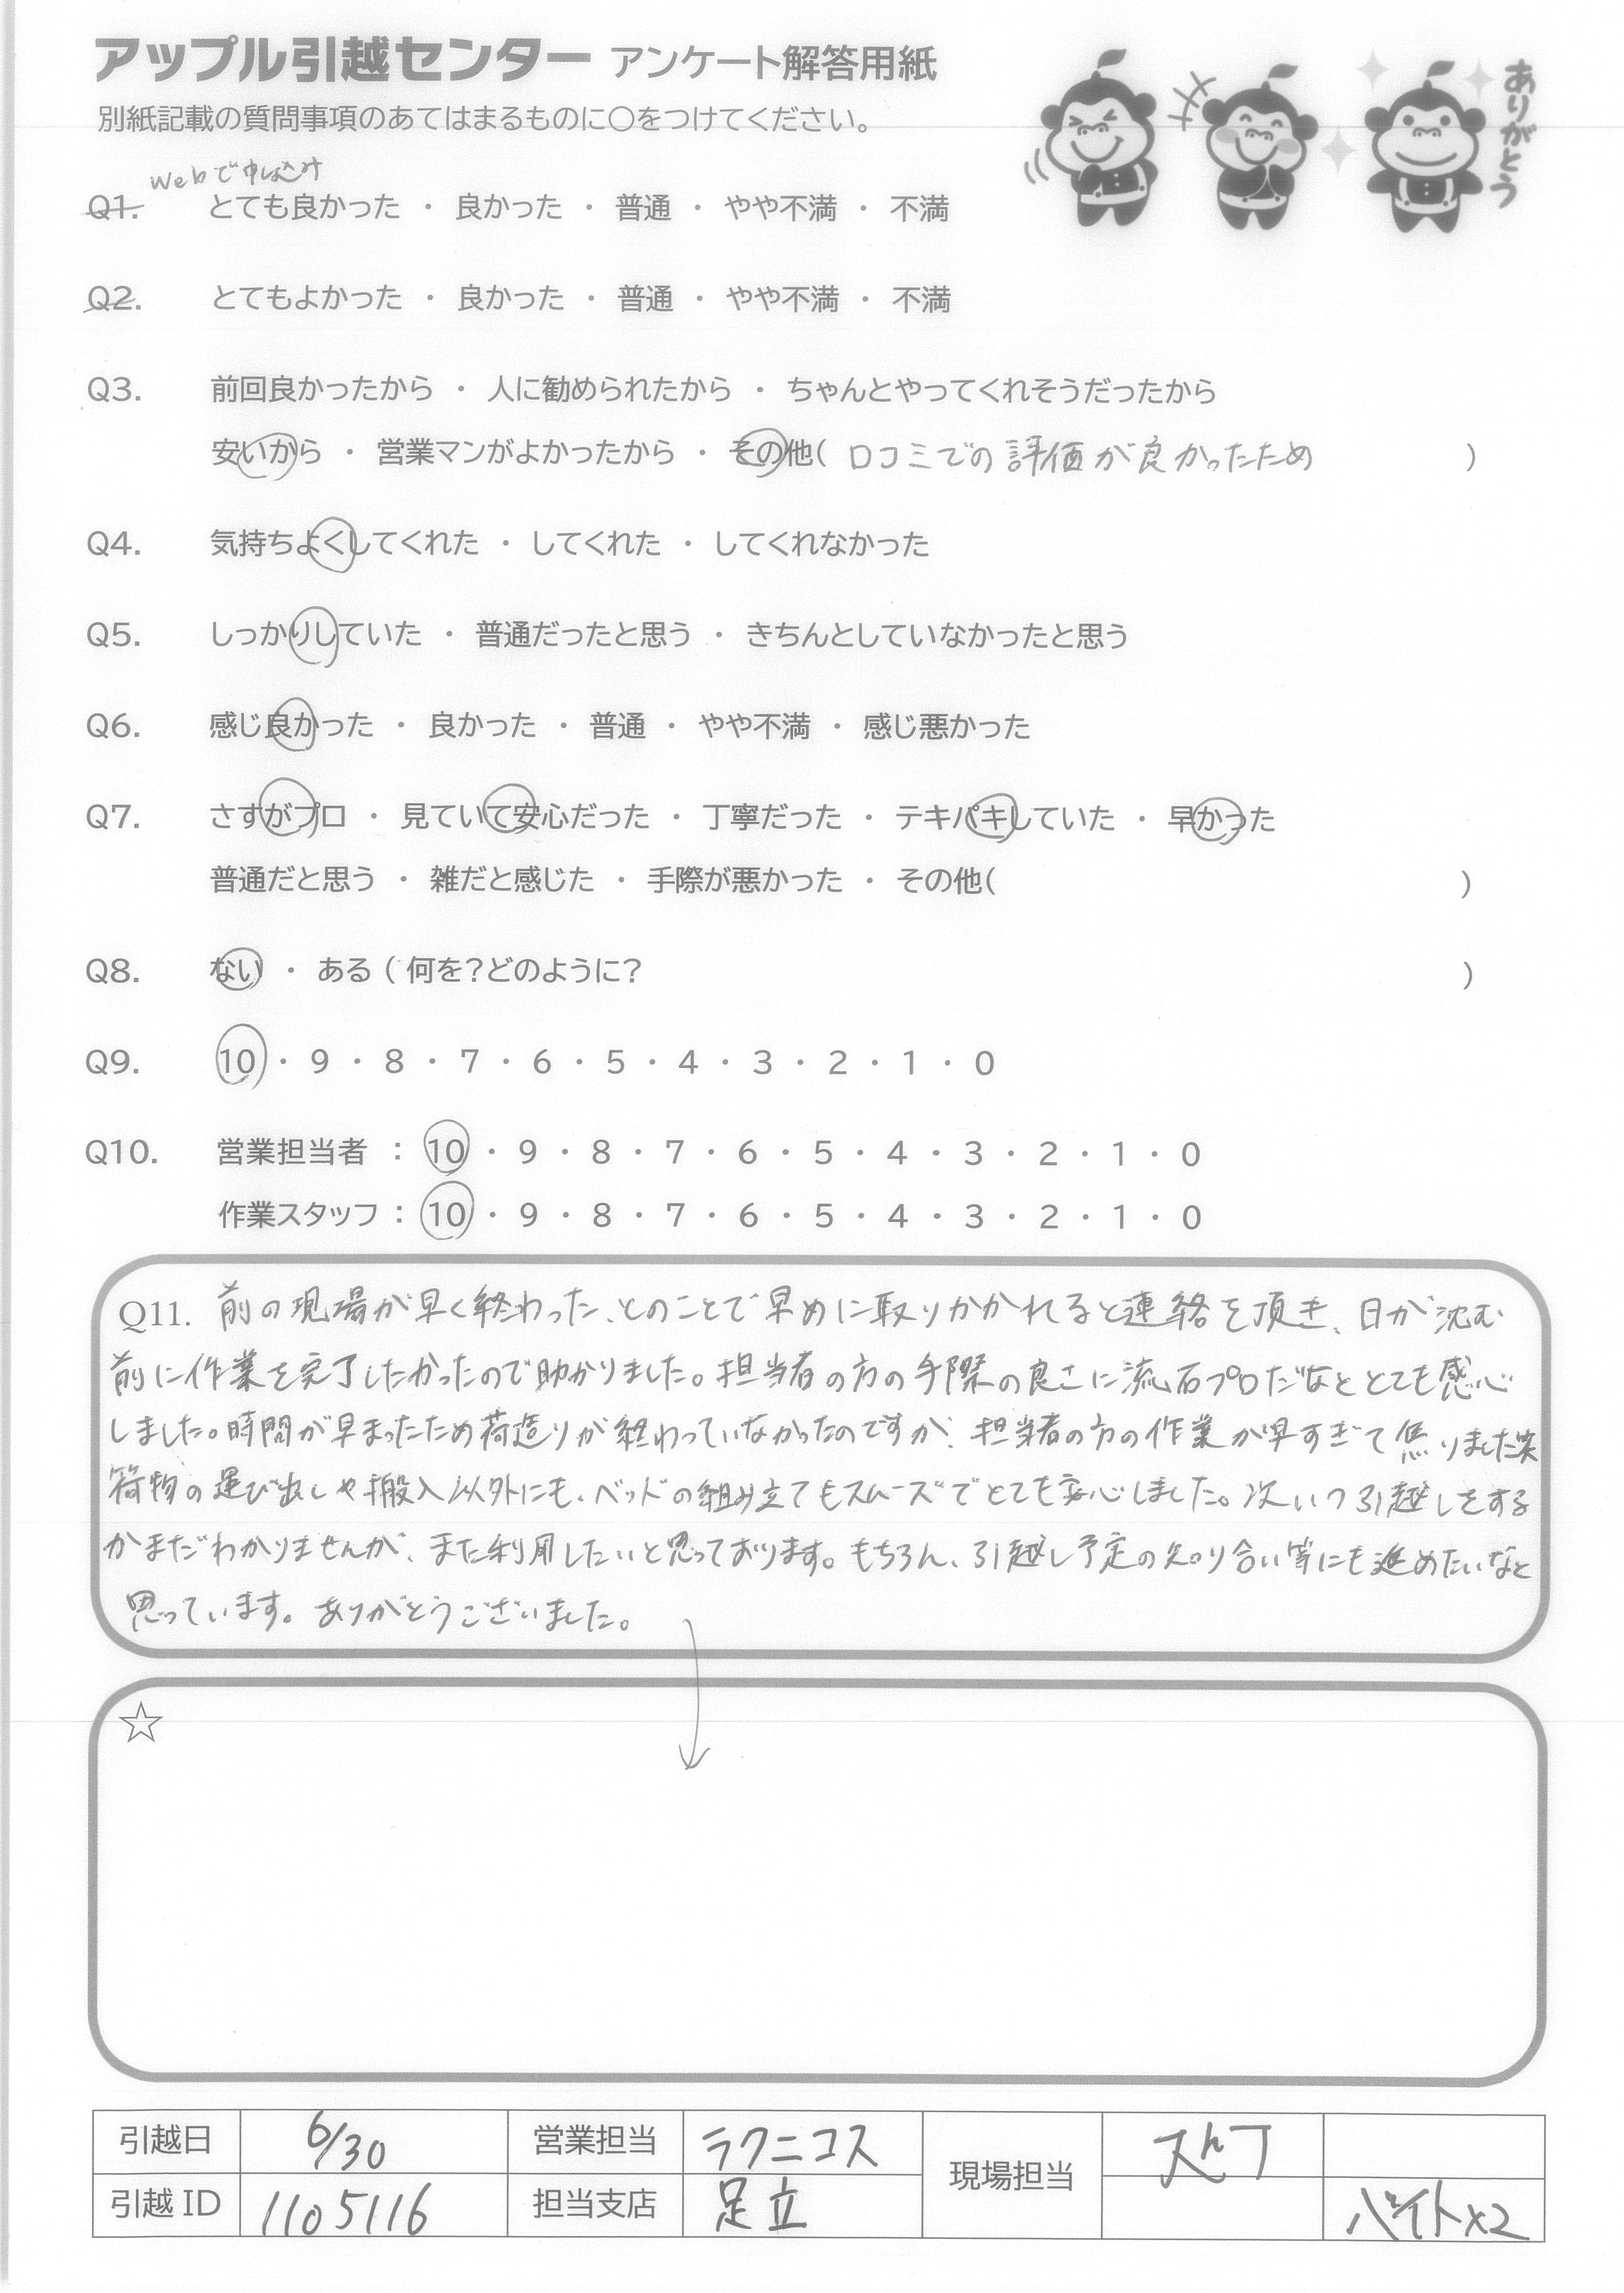 アップル引越センター アンケート解答用紙
別紙記載の質問事項のあてはまるものに〇をつけてください。
ありがとう
Webで申し込み
Q1. とても良かった ・ 良かった ・ 普通 ・ やや不満 ・ 不満
Q2. とてもよかった ・ 良かった ・ 普通 ・ やや不満 ・ 不満
Q3. 前回良かったから ・ 人に勧められたから ・ ちゃんとやってくれそうだったから
安いから ・ 営業マンがよかったから ・ その他( 口コミでの評価が良かったため )
Q4. 気持ちよくしてくれた ・ してくれた ・ してくれなかった
Q5. しっかりしていた ・ 普通だったと思う ・ きちんとしていなかったと思う
Q6. 感じ良かった ・ 良かった ・ 普通 ・ やや不満 ・ 感じ悪かった
Q7. さすがプロ ・ 見ていて安心だった ・ 丁寧だった ・ テキパキしていた ・ 早かった
普通だと思う ・ 雑だと感じた ・ 手際が悪かった ・ その他( )
Q8. ない ・ ある ( 何を?どのように? )
Q9. 10 ・ 9 ・ 8 ・ 7 ・ 6 ・ 5 ・ 4 ・ 3 ・ 2 ・ 1 ・ 0
Q10. 営業担当者 : 10 ・ 9 ・ 8 ・ 7 ・ 6 ・ 5 ・ 4 ・ 3 ・ 2 ・ 1 ・ 0
作業スタッフ : 10 ・ 9 ・ 8 ・ 7 ・ 6 ・ 5 ・ 4 ・ 3 ・ 2 ・ 1 ・ 0
Q11. 前の現場が早く終わった、とのことで早めに取りかかれると連絡を頂き、日が沈む
前に作業を完了したかったので助かりました。担当者の方の手際の良さに流石プロだなととても感心
しました。時間が早まったため荷造りが終わっていなかったのですが、担当者の方の作業が早すぎて焦りました笑
荷物の運び出しや搬入以外にも、ベッドの組み立てもスムーズでとても安心しました。次いつ引越しをする
かまだわかりませんが、また利用したいと思っております。もちろん、引越し予定の知り合い等にも進めたいなと
思っています。ありがとうございました。
☆
引越日 6/30 営業担当 ラクニコス 現場担当
引越ID 1105116 担当支店 足立 バイト×2